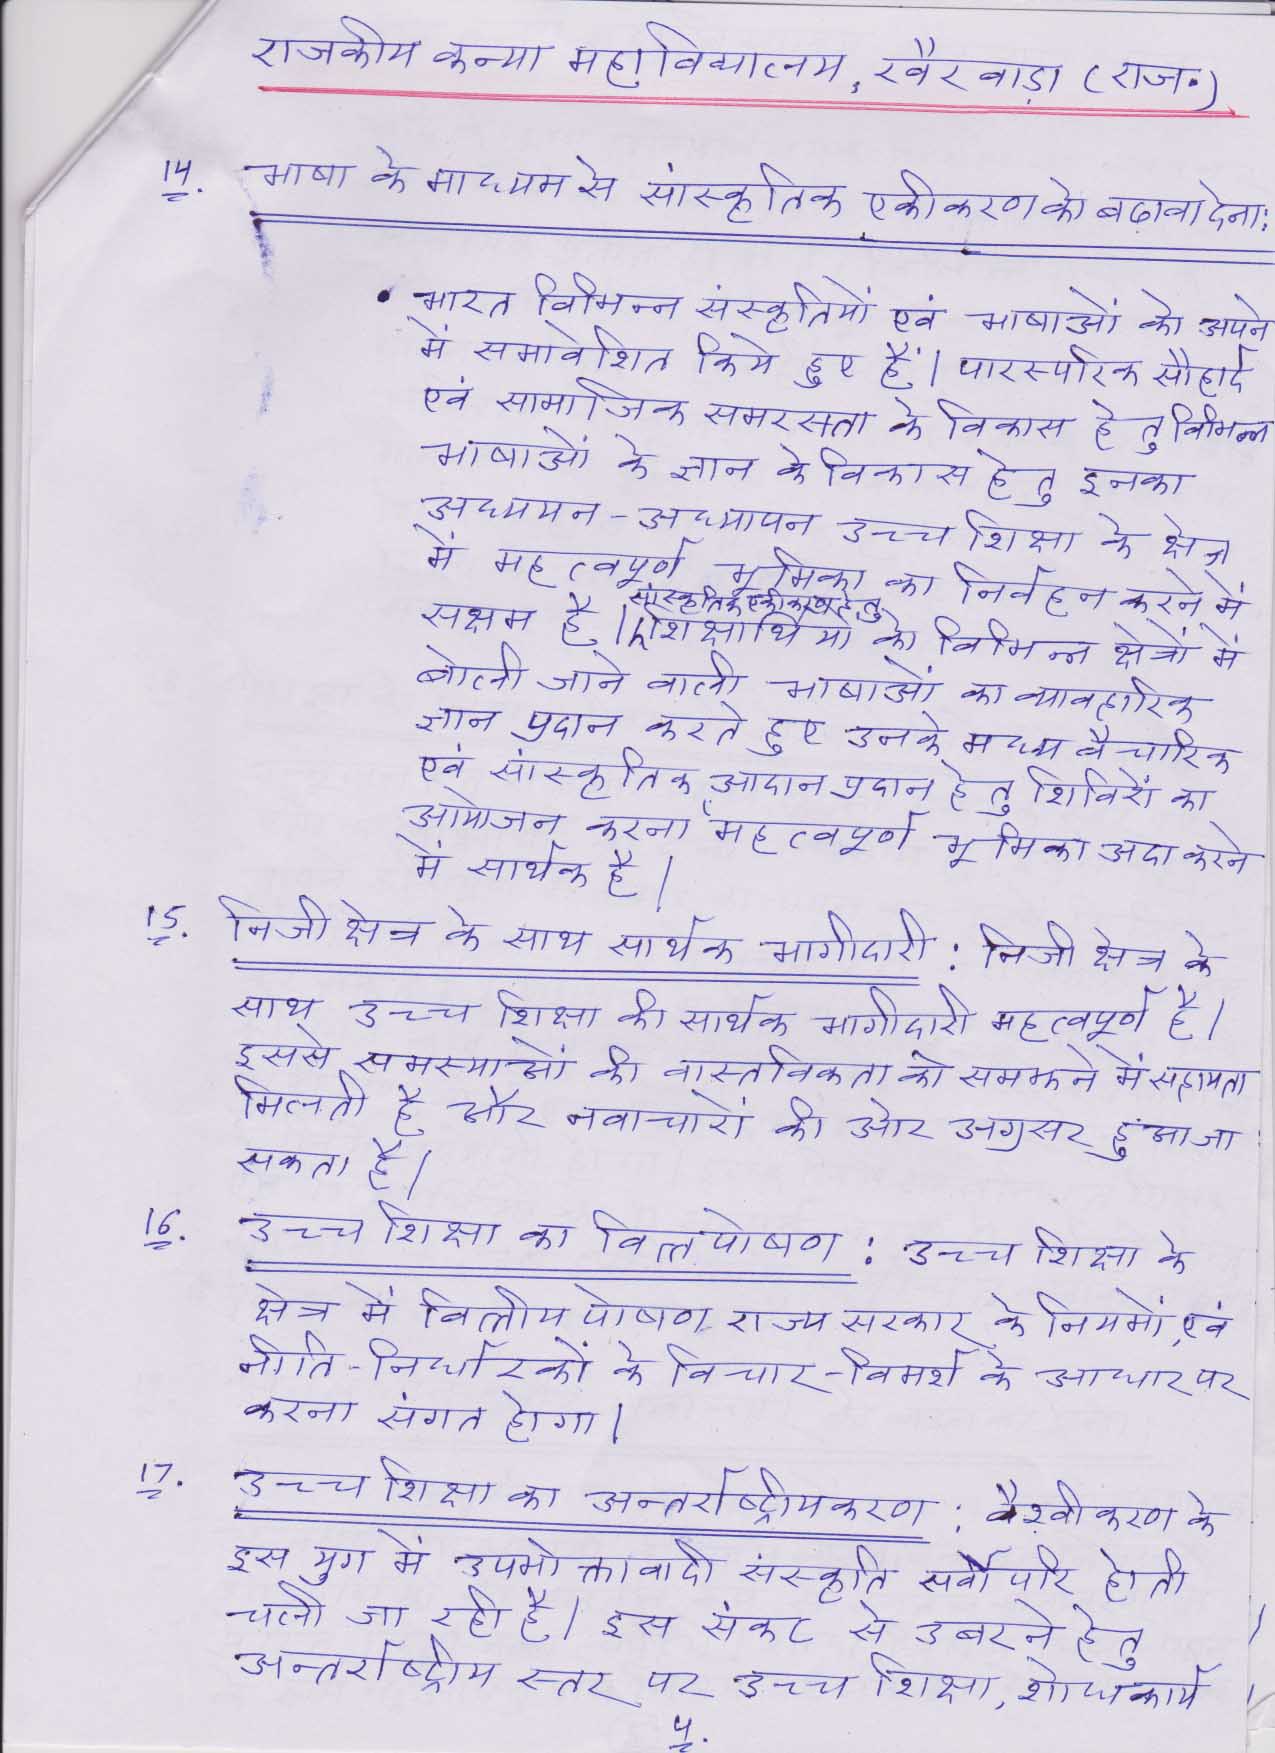 राजकीय कन्या महाविद्यालय, खैरवाड़ा (राज.)
14. भाषा के माध्यम से सांस्कृतिक एकीकरण को बढावा देना:
• भारत विभिन्न संस्कृतियों एवं भाषाओं को अपने
में समावेशित किये हुए हैं। पारस्परिक सौहार्द
एवं सामाजिक समरसता के विकास हेतु विभिन्न
भाषाओं के ज्ञान के विकास हेतु इनका
अध्ययन - अध्यापन उच्च शिक्षा के क्षेत्र
में महत्वपूर्ण भूमिका का निर्वहन करने में
सांस्कृतिक एकीकरण हेतु
सक्षम है। शिक्षार्थियों को विभिन्न क्षेत्रों में
बोली जाने वाली भाषाओं का व्यावहारिक
ज्ञान प्रदान करते हुए उनके मध्य वैचारिक
एवं सांस्कृतिक आदान प्रदान हेतु शिविरों का
आयोजन करना महत्वपूर्ण भूमिका अदा करने
में सार्थक है।
15. निजी क्षेत्र के साथ सार्थक भागीदारी : निजी क्षेत्र के
साथ उच्च शिक्षा की सार्थक भागीदारी महत्वपूर्ण है।
इससे समस्याओं की वास्तविकता को समझने में सहायता
मिलती है और नवाचारों की ओर अग्रसर हुआ जा
सकता है।
16. उच्च शिक्षा का वित्तपोषण : उच्च शिक्षा के
क्षेत्र में वित्तीय पोषण राज्य सरकार के नियमों एवं
नीति - निर्धारकों के विचार - विमर्श के आधार पर
करना संगत होगा।
17. उच्च शिक्षा का अन्तर्राष्ट्रीयकरण : वैश्वीकरण के
इस युग में उपभोक्तावादी संस्कृति सर्वोपरि होती
चली जा रही है। इस संकट से उबरने हेतु
अन्तर्राष्ट्रीय स्तर पर उच्च शिक्षा, शोधकार्य